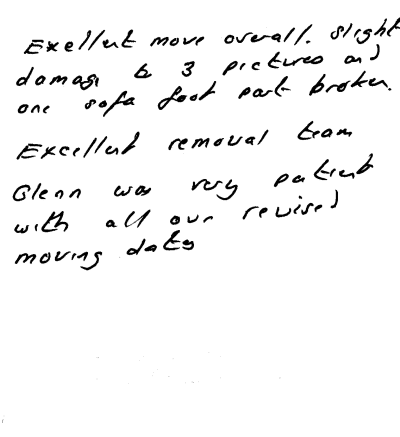 Exellent move overall. Slight
damage to 3 pictures and
one sofa foot part broken.
Excellent removal team
Glenn was very patient
with all our revised
moving dates